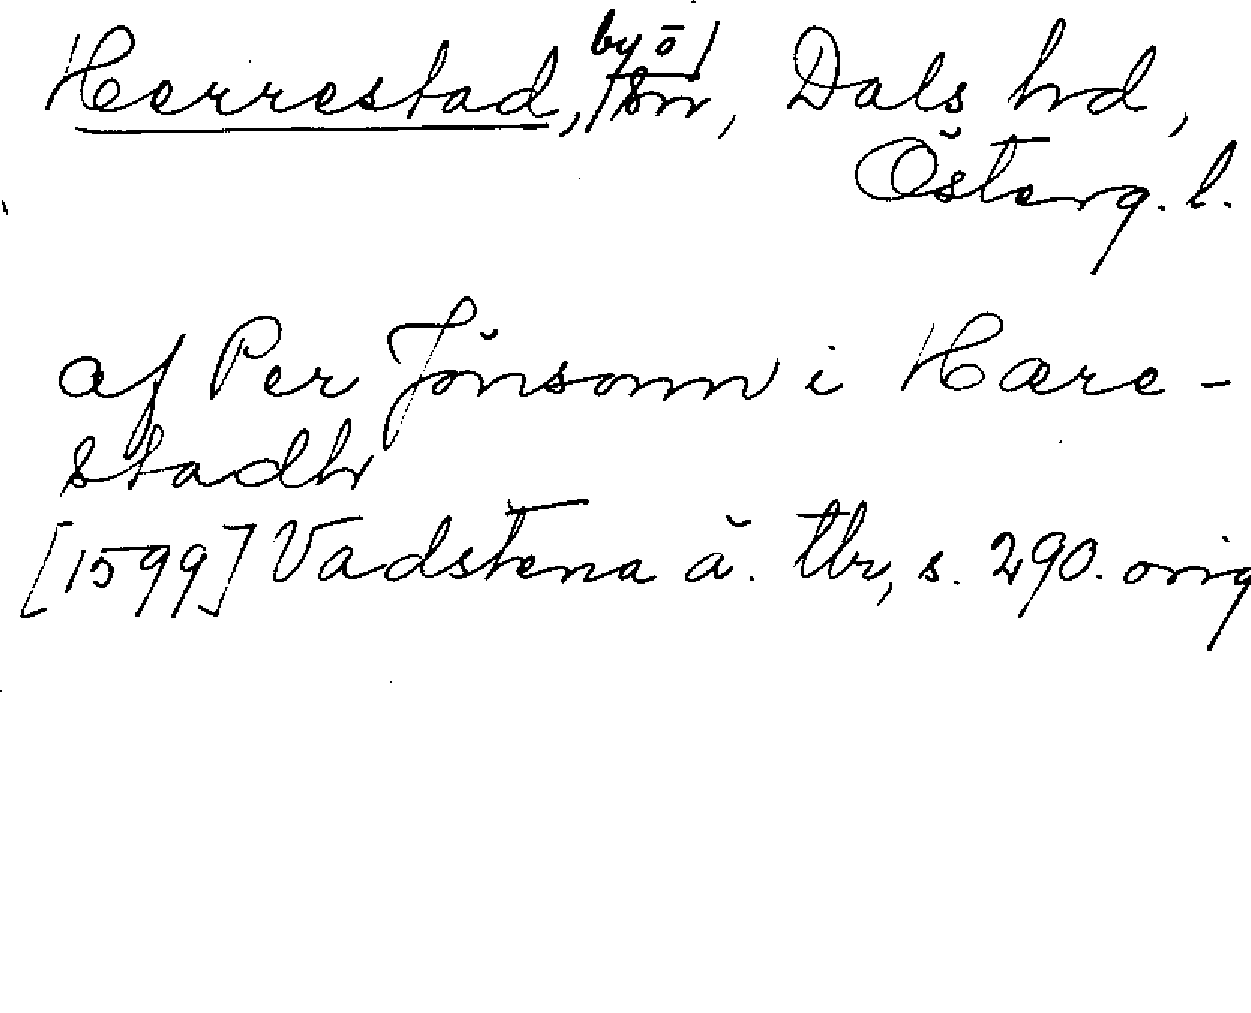 Herrestad, by o sn, Dals hd,
Österg. l.
af Per Jönsonn i Hære-
stadh
[1599] Vadstena ä. tb, s. 290. orig